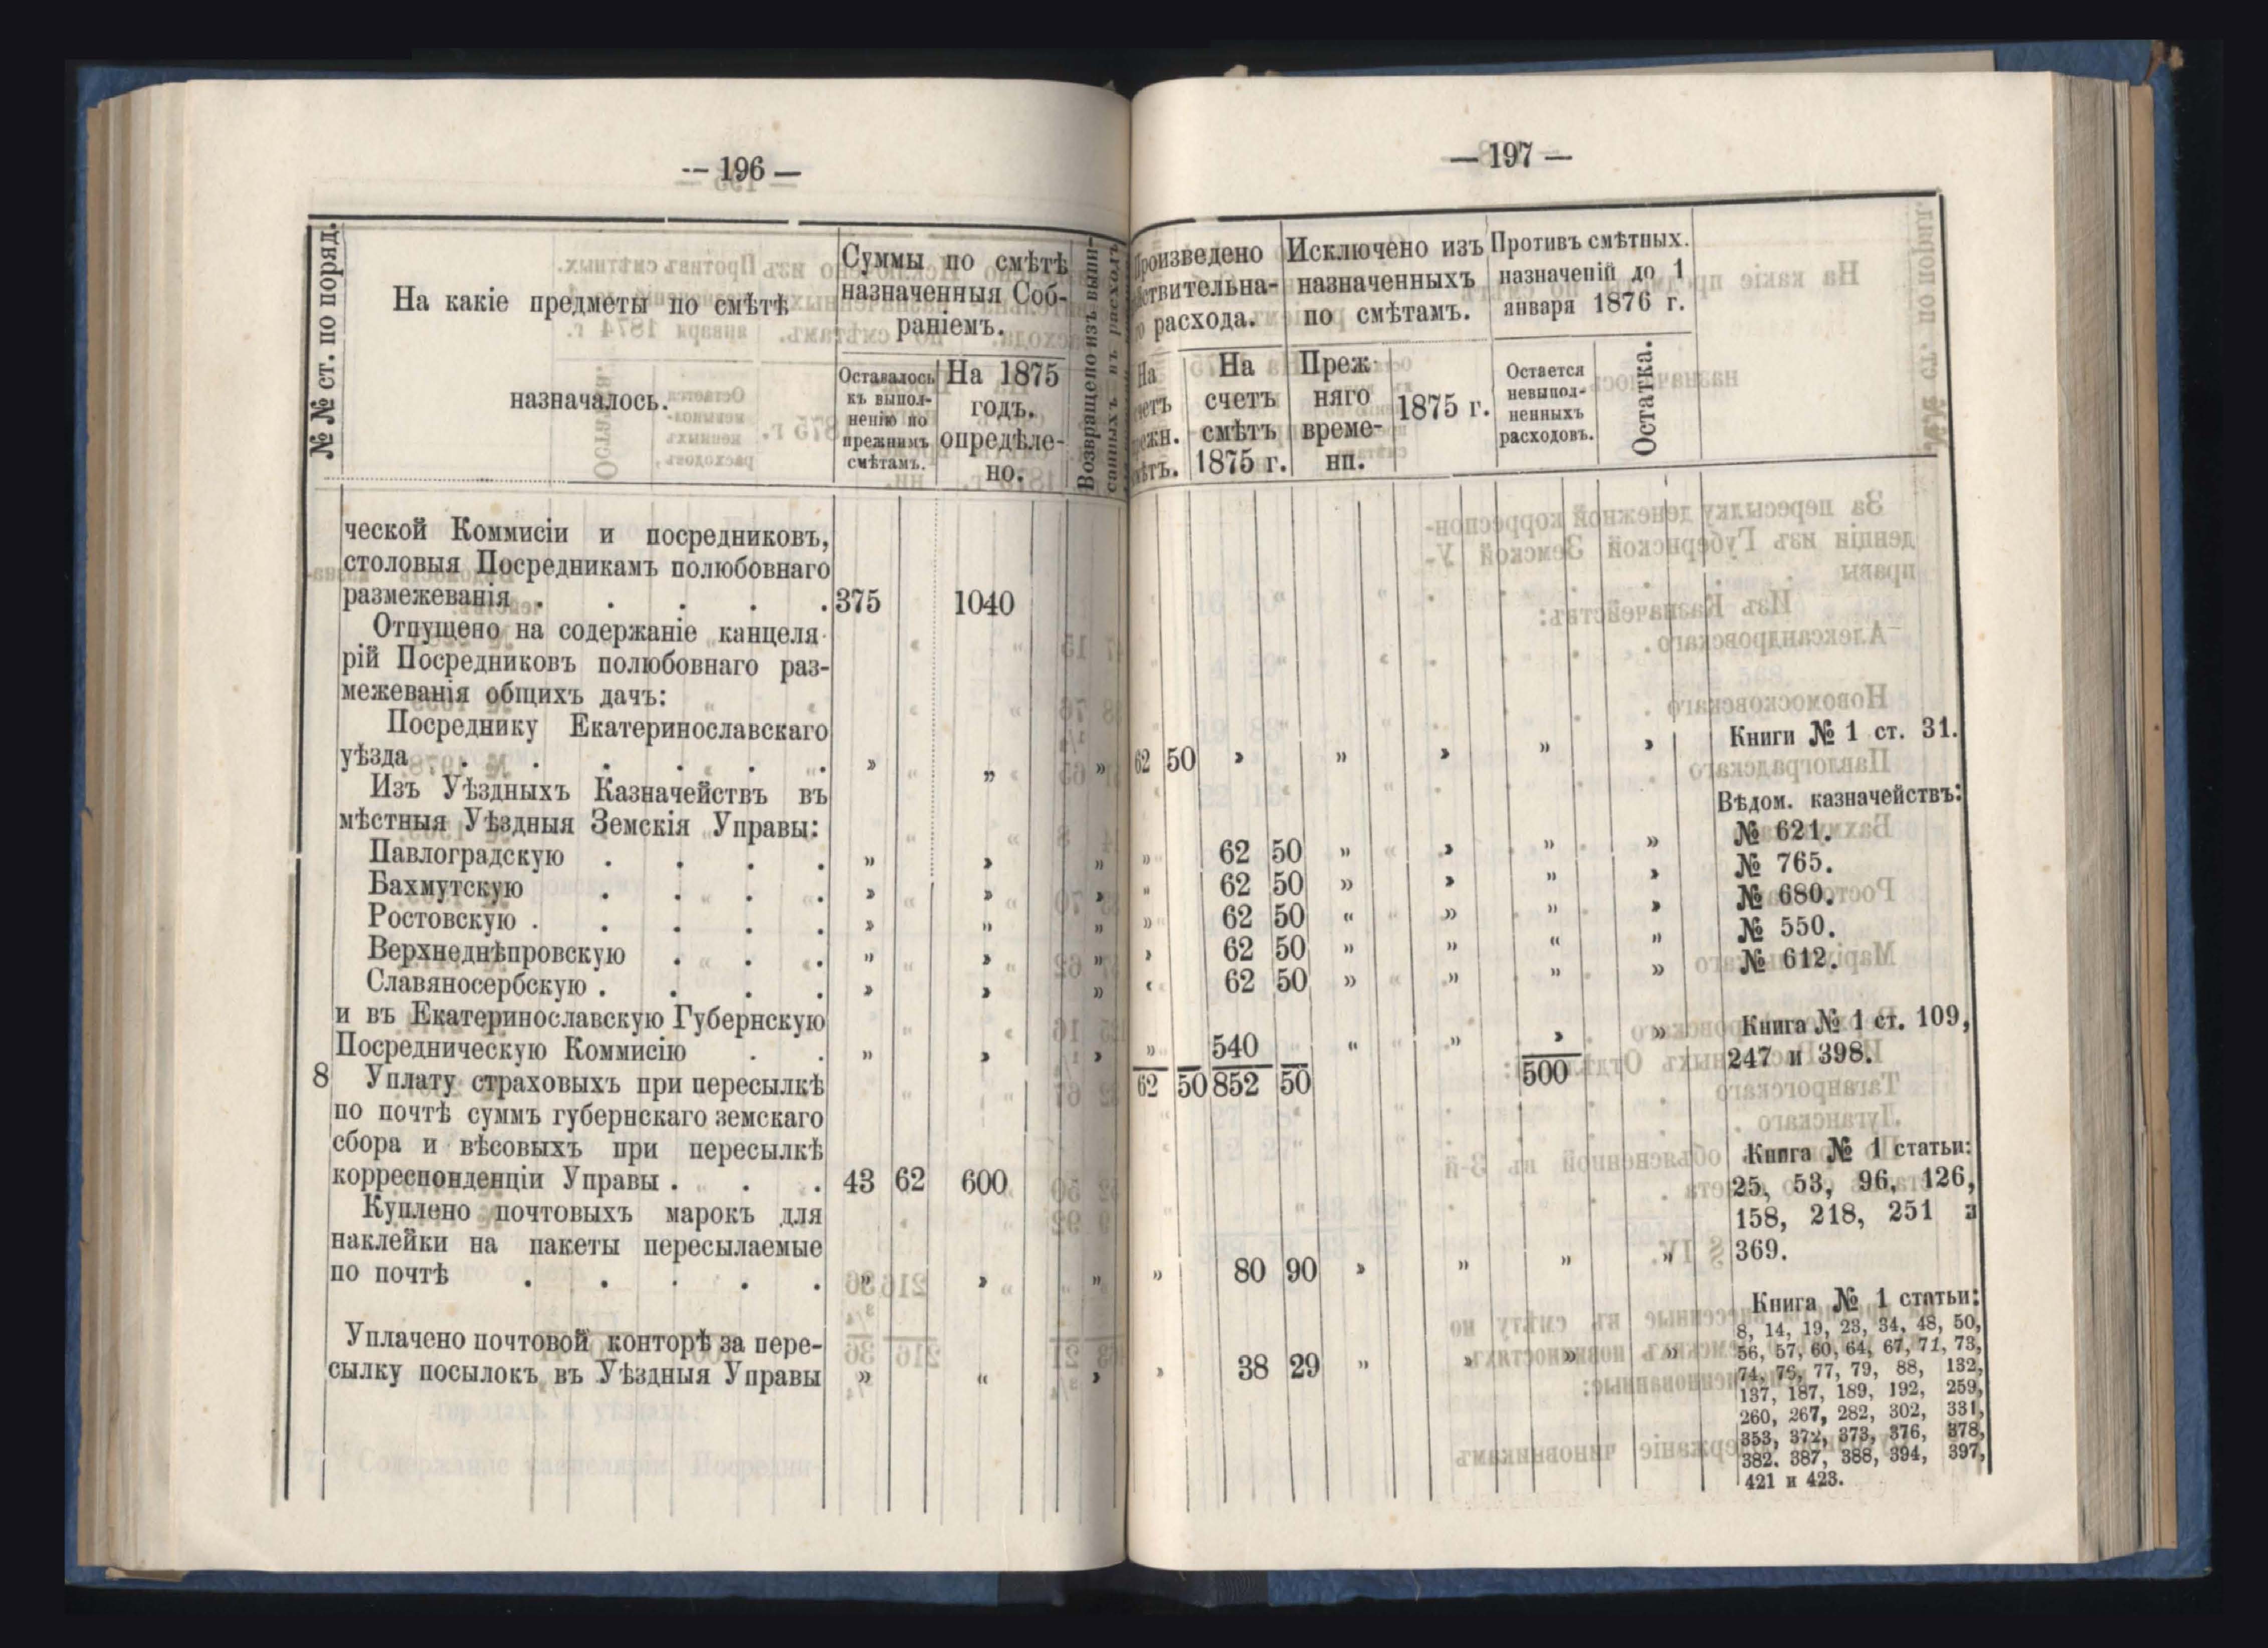 -- 196 —
№№ ст. по поряд.
На какіе предметы по смѣтѣ
назначалось.
Суммы по смѣтѣ
назначенныя Соб-
раніемъ.
Оставалось
къ выпол-
ненію по
прежнимъ
смѣтамъ.
На 1875
годъ.
опредѣле-
но:
Возвращено изъ выпи-
санныхъ въ расходъ
ческой Коммисіи и посредниковъ,
столовыя Посредникамъ полюбовнаго
размежеванія . . . . . 375 1040
Отпущено на содержаніе канцеля-
рій Посредниковъ полюбовнаго раз-
межеванія общихъ дачъ:
Посреднику Екатеринославскаго
уѣзда . . . . . . » „ »
Изъ Уѣздныхъ Казначействъ въ
мѣстныя Уѣздныя Земскія Управы:
Павлоградскую . . . . » » »
Бахмутскую . . . . » » »
Ростовскую . . . . . » » »
Верхнеднѣпровскую . . . » » »
Славяносербскую . . . . » » »
и въ Екатеринославскую Губернскую
Посредническую Коммисію . . » » »
8 Уплату страховыхъ при пересылкѣ
по почтѣ суммъ губернскаго земскаго
сбора и вѣсовыхъ при пересылкѣ
корреспонденціи Управы . . . 43 62 600
Куплено почтовыхъ марокъ для
наклейки на пакеты пересылаемые
по почтѣ . . . . . » » »
Уплачено почтовой конторѣ за пере-
сылку посылокъ въ Уѣздныя Управы » “ »
— 197 —
Произведено
расхода.
Исключено изъ
назначенныхъ
по смѣтамъ.
Противъ смѣтныхъ.
назначеній до 1
января 1876 г.
На
На
счетъ
смѣтъ
1875 г.
Преж-
няго
време-
ни.
1875 г.
Остается
невыпол-
ненныхъ
расходовъ.
Остатка.
62 50 » » » » » Книги № 1 ст. 31.
Вѣдом. казначействъ:
» 62 50 » » » » № 621.
» 62 50 » » » » № 765.
» 62 50 “ » » » № 680.
» 62 50 » » “ » № 550.
“ 62 50 » » » » № 612.
» 540 “ » » » Книга № 1 ст. 109,
62 50 852 50 500 247 и 398.
Книга № 1 статьи:
25, 53, 96, 126,
158, 218, 251 и
» 80 90 » » » » 369.
Книга № 1 статьи:
8, 14, 19, 23, 34, 48, 50,
» 38 29 » » » » 56, 57, 60, 64, 67, 71, 73,
74, 75, 77, 79, 88, 132,
137, 187, 189, 192, 259,
260, 267, 282, 302, 331,
353, 372, 373, 376, 378,
382. 387, 388, 394, 397,
421 и 423.